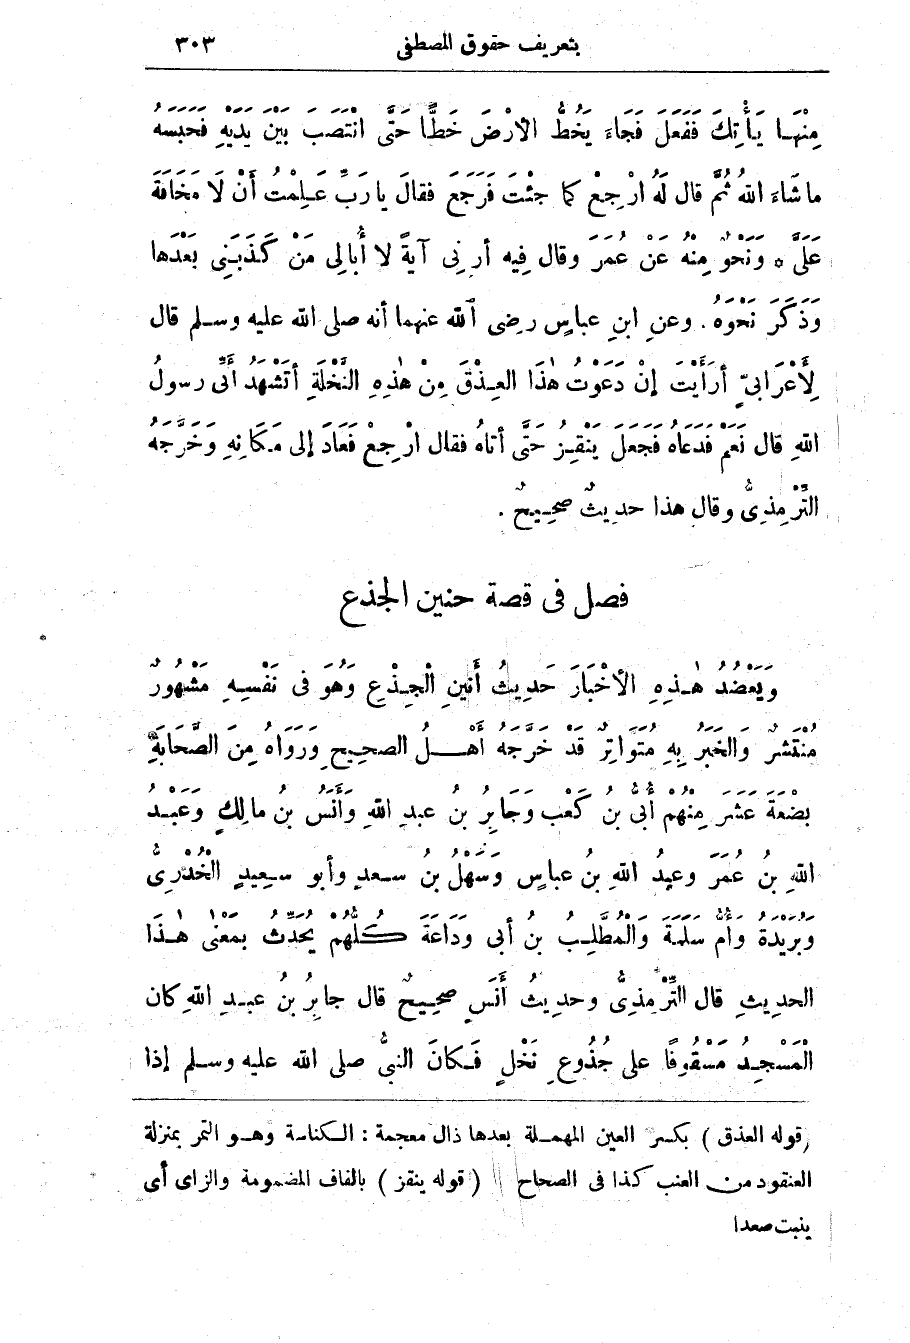 بتعريف حقوق المصطفى ٣٠٣
مِنْهَا يَأْتِكَ فَفَعَلَ فَجَاءَ يَخُطُّ الأَرْضَ خَطًّا حَتَّى انْتَصَبَ بَيْنَ يَدَيْهِ فَحَبَسَهُ
ما شَاءَ اللهُ ثُمَّ قال لَهُ ارْجِعْ كما جِئْتَ فَرَجَعَ فقالَ يا رَبِّ عَلِمْتُ أَنْ لَا مَخَافَةَ
عَلَىَّ * وَنَحْوٌ مِنْهُ عَنْ عُمَرَ وقال فِيه أَرِنِى آيَةً لا أُبالِى مَنْ كَذَّبَنِى بَعْدَها
وَذَكَرَ نَحْوَهُ . وعنِ ابنِ عباسٍ رضى الله عنهما أنه صلى الله عليه وسلم قال
لِأَعْرَابىٍّ أَرَأَيْتَ إنْ دَعَوْتُ هٰذَا العِذْقَ مِنْ هٰذِهِ النَّخْلَةِ أَتَشْهَدُ أَنِّى رسولُ
اللهِ قال نَعَمْ فَدَعَاهُ فَجَعَلَ يَنْقِزُ حَتَّى أتاهُ فقال ارْجِعْ فَعَادَ إلى مَكَانِهِ وَخَرَّجَهُ
التِّرْمِذِىُّ وقال هذا حديثٌ صحِيحٌ .
فصل فى قصة حنين الجذع
وَيَعْضُدُ هٰذِهِ الأَخْبَارَ حَدِيثُ أَنِينِ الْجِذْعِ وَهُوَ فى نَفْسِهِ مَشْهُورٌ
مُنْتَشِرٌ وَالخَبَرُ بِهِ مُتَوَاتِرٌ قَدْ خَرَّجَهُ أَهْلُ الصحيحِ وَرَوَاهُ مِنَ الصَّحَابَةِ
بِضْعَةَ عَشَرَ مِنْهُمْ أُبَىُّ بنُ كَعْبٍ وَجَابِرُ بنُ عبدِ اللهِ وَأَنَسُ بنُ مالِكٍ وَعَبْدُ
اللهِ بنُ عُمَرَ وعبدُ اللهِ بنُ عباسٍ وَسَهْلُ بنُ سعدٍ وأبو سعِيدٍ الخُدْرِىُّ
وَبُرَيْدَةُ وَأُمُّ سَلَمَةَ وَالْمُطَّلِبُ بنُ أبى وَدَاعَةَ كُلُّهُمْ يُحَدِّثُ بِمَعْنَى هٰذَا
الحديثِ قال التِّرْمِذِىُّ وحديثُ أَنَسٍ صحيحٌ قال جابِرُ بنُ عبدِ اللهِ كان
الْمَسْجِدُ مَسْقُوفًا على جُذُوعِ نَخْلٍ فَكانَ النبىُّ صلى الله عليه وسلم إذا
(قوله العذق) بكسر العين المهملة بعدها ذال معجمة : الكناسة وهو التمر بمنزلة
العنقود من العنب كذا فى الصحاح (قوله ينقز) بالقاف المضمومة والزاى أى
ينبت صعدا